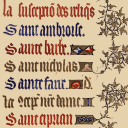 la suscepciõ des reliq̃s
Saint ambroise.
Sainte barbe.
Saint nicolas
Sainte fare.
la 9cep. nr̃e dame.
Saint ciprian